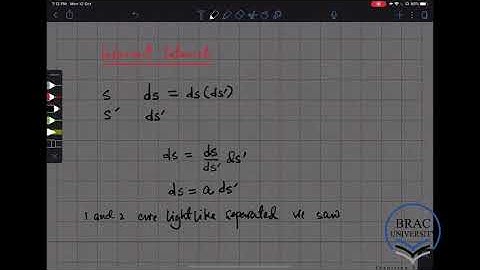 7:12 PM Mon 12 Oct
60%
Interval
s ds = ds(ds')
s' ds'
ds = ds/ds' ds'
ds = a ds'
1 and 2 are lightlike separated we saw
BRAC
UNIVERSITY